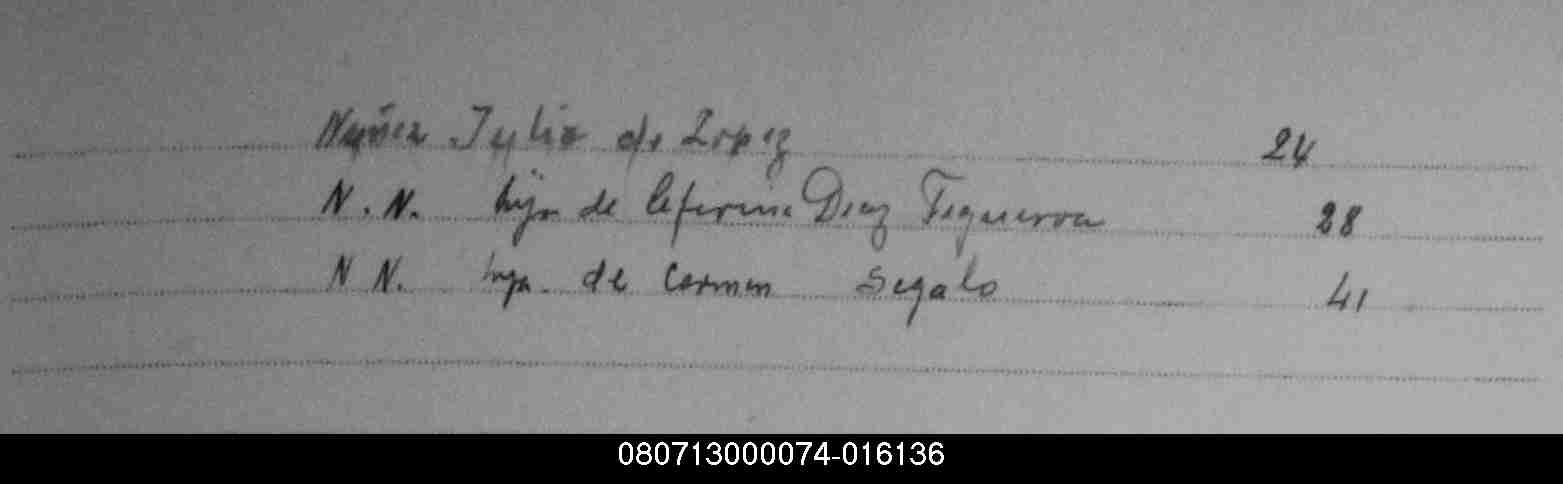 Nuñez Julia de Lopez 24
N. N. hija de Ceferina Diaz Figueroa 28
N N. hija de Carmen Segalo 41
080713000074-016136